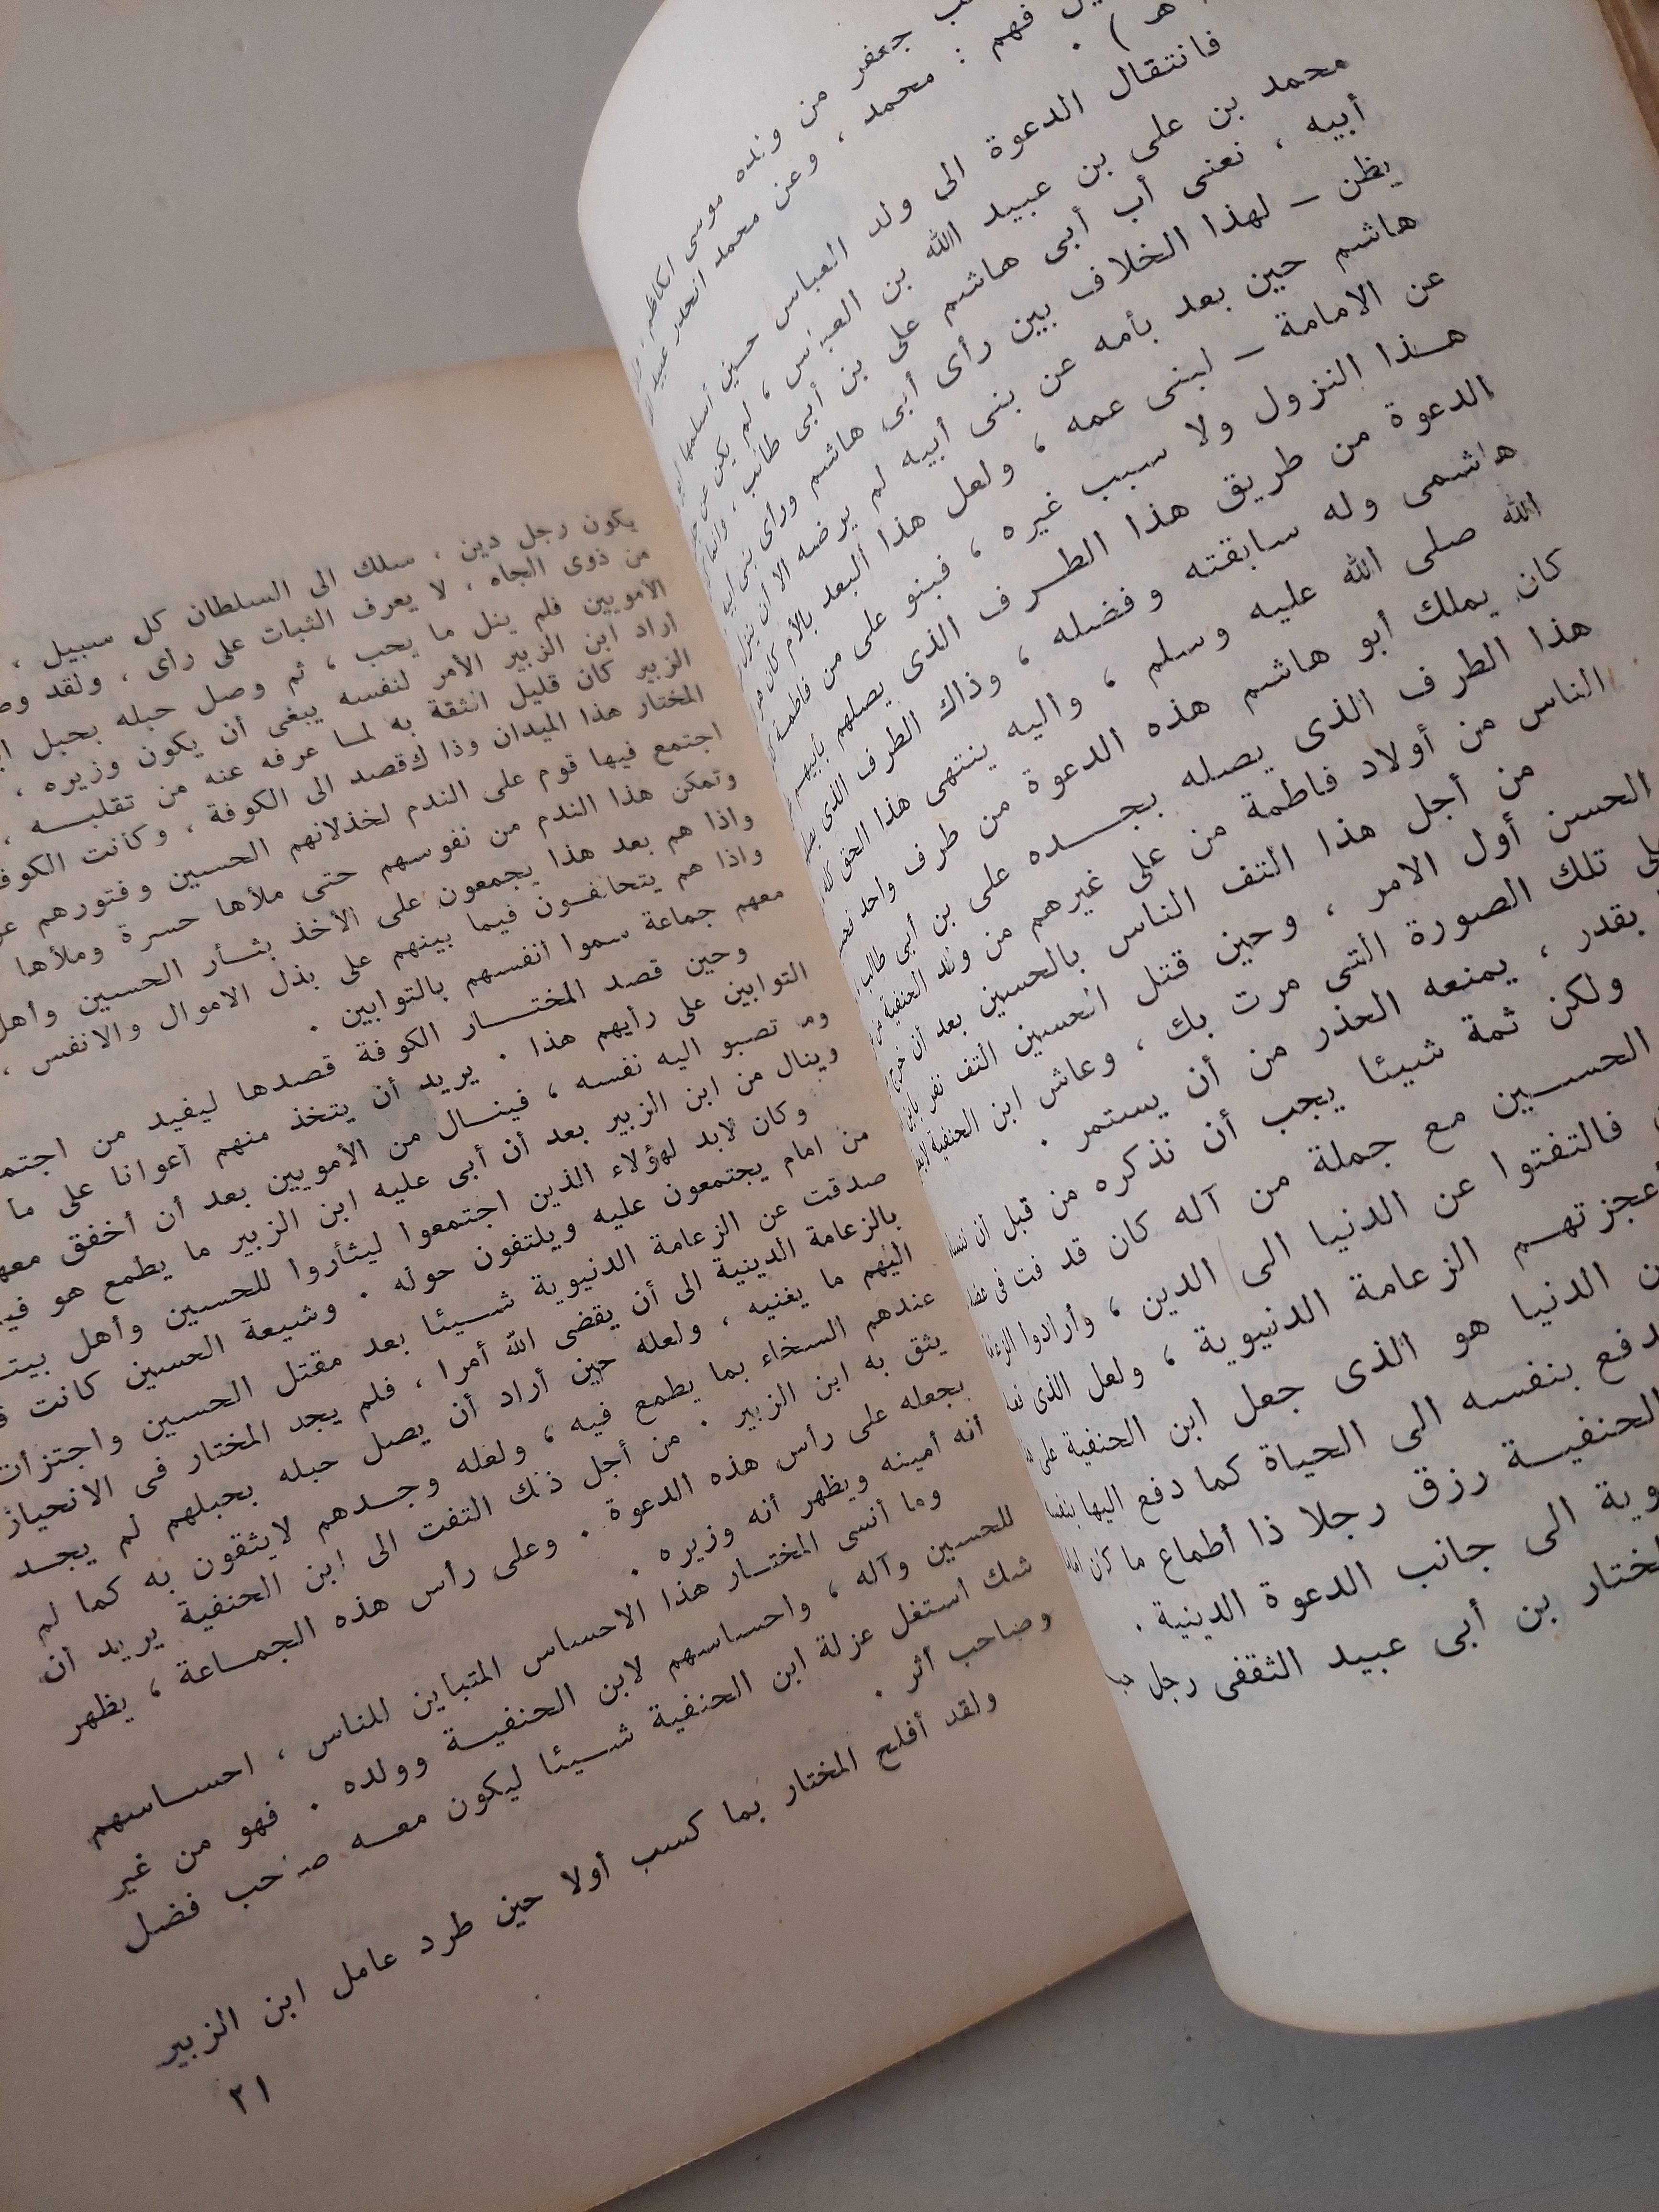 جعفر من ولده موسى الكاظم
فهم : محمد ، وعن محمد انحدر عبيد
هـ ) .
فانتقال الدعوة الى ولد العباس حين أسلمها
محمد بن على بن عبيد الله بن العباس ، لم يكن عن
أبيه ، نعنى أب أبى هاشم على بن أبى طالب ، وانما
يظن – لهذا الخلاف بين رأى أبى هاشم ورأى بنى أبيه
هاشم حين بعد بأمه عن بنى أبيه لم يرضه الا أن ينزل
عن الامامة – لبنى عمه ، ولعل هذا البعد بالأم كان
هـذا النزول ولا سبب غيره ، فبنو على من فاطمة
الدعوة من طريق هذا الطـرف الذى يصلهم بأبيهم
هاشمى وله سابقته وفضله ، وذاك الطرف الذى
الله صلى الله عليه وسلم ، واليه ينتهى هذا الحق كله
كان يملك أبو هاشم هذه الدعوة من طرف واحد
هذا الطرف الذى يصله بجـــده على بن أبى طالب
الناس من أولاد فاطمة من على غيرهم من ولد الحنفية من
من أجل هذا التف الناس بالحسين بعد أن خرج
الحسن أول الامر ، وحين قتل الحسين التف نفر بابن
تلك الصورة التى مرت بك ، وعاش ابن الحنفية
بقدر ، يمنعه الحذر من أن يستمر .
ولكن ثمة شيئا يجب أن نذكره من قبل أن
الحســين مع جملة من آله كان قد فت فى
فالتفتوا عن الدنيا الى الدين ، وأرادوا
أعجزتهــم الزعامة الدنيوية ، ولعل الذى
الدنيا هو الذى جعل ابن الحنفية على
دفع بنفسه الى الحياة كما دفع اليها
الحنفيــة رزق رجلا ذا أطماع ما كان
الى جانب الدعوة الدينية .
المختار بن أبى عبيد الثقفى رجل
يكون رجل دين ، سلك الى السلطان كل سبيل ،
من ذوى الجاه ، لا يعرف الثبات على رأى ، ولقد
الأمويين فلم ينل ما يحب ، ثم وصل حبله بحبل
أراد ابن الزبير الأمر لنفسه يبغى أن يكون وزيره ،
الزبير كان قليل الثقة به لمـا عرفه عنه من تقلبـــه ،
المختار هذا الميدان وذاك قصد الى الكوفة ، وكانت
اجتمع فيها قوم على الندم لخذلانهم الحسين وفتورهم
وتمكن هذا الندم من نفوسهم حتى ملأها حسرة وملأها
واذا هم بعد هذا يجمعون على الأخذ بثــأر الحسين
واذا هم يتحالفـون فيما بينهم على بذل الاموال والانفس ،
معهم جماعة سموا أنفسهم بالتوابين .
وحين قصد المختــار الكوفة قصدها ليفيد من
التوابين على رأيهم هذا . يريد أن يتخذ منهم أعوانا على ما
وما تصبو اليه نفسه ، فينــال من الأمويين بعد أن أخفق
وينال من ابن الزبير بعد أن أبى عليه ابن الزبير ما يطمع هو
وكان لابد لهؤلاء الذين اجتمعوا ليثأروا للحسين وأهل
من امام يجتمعون عليه ويلتفون حوله . وشيعة الحسين كانت
صدفت عن الزعامة الدنيوية شــيئا بعد مقتل الحسين واجتزأت
بالزعامة الدينية الى أن يقضى الله أمرا ، فلم يجد المختار فى الانحياز
اليهم ما يغنيه ، ولعله حين أراد أن يصل حبله بحبلهم لم يجــد
عندهم السخاء بما يطمع فيه ، ولعله وجــدهم لايثقون به كما لم
يثق به ابن الزبير . من أجل ذلك التفت الى ابن الحنفية يريد أن
يجعله على رأس هذه الدعوة . وعلى رأس هذه الجمــاعة ، يظهر
أنه أمينه ويظهر أنه وزيره .
وما أنسى المختــار هذا الاحساس المتباين للناس ، احســاسهم
للحسين وآله ، واحساسهم لابن الحنفيــة وولده . فهو من غير
شك استغل عزلة ابن الحنفية شــيئا ليكون معــه صاحب فضل
وصاحب أثر .
ولقد أفلح المختار بما كسب أولا حين طرد عامل ابن الزبير
٢١